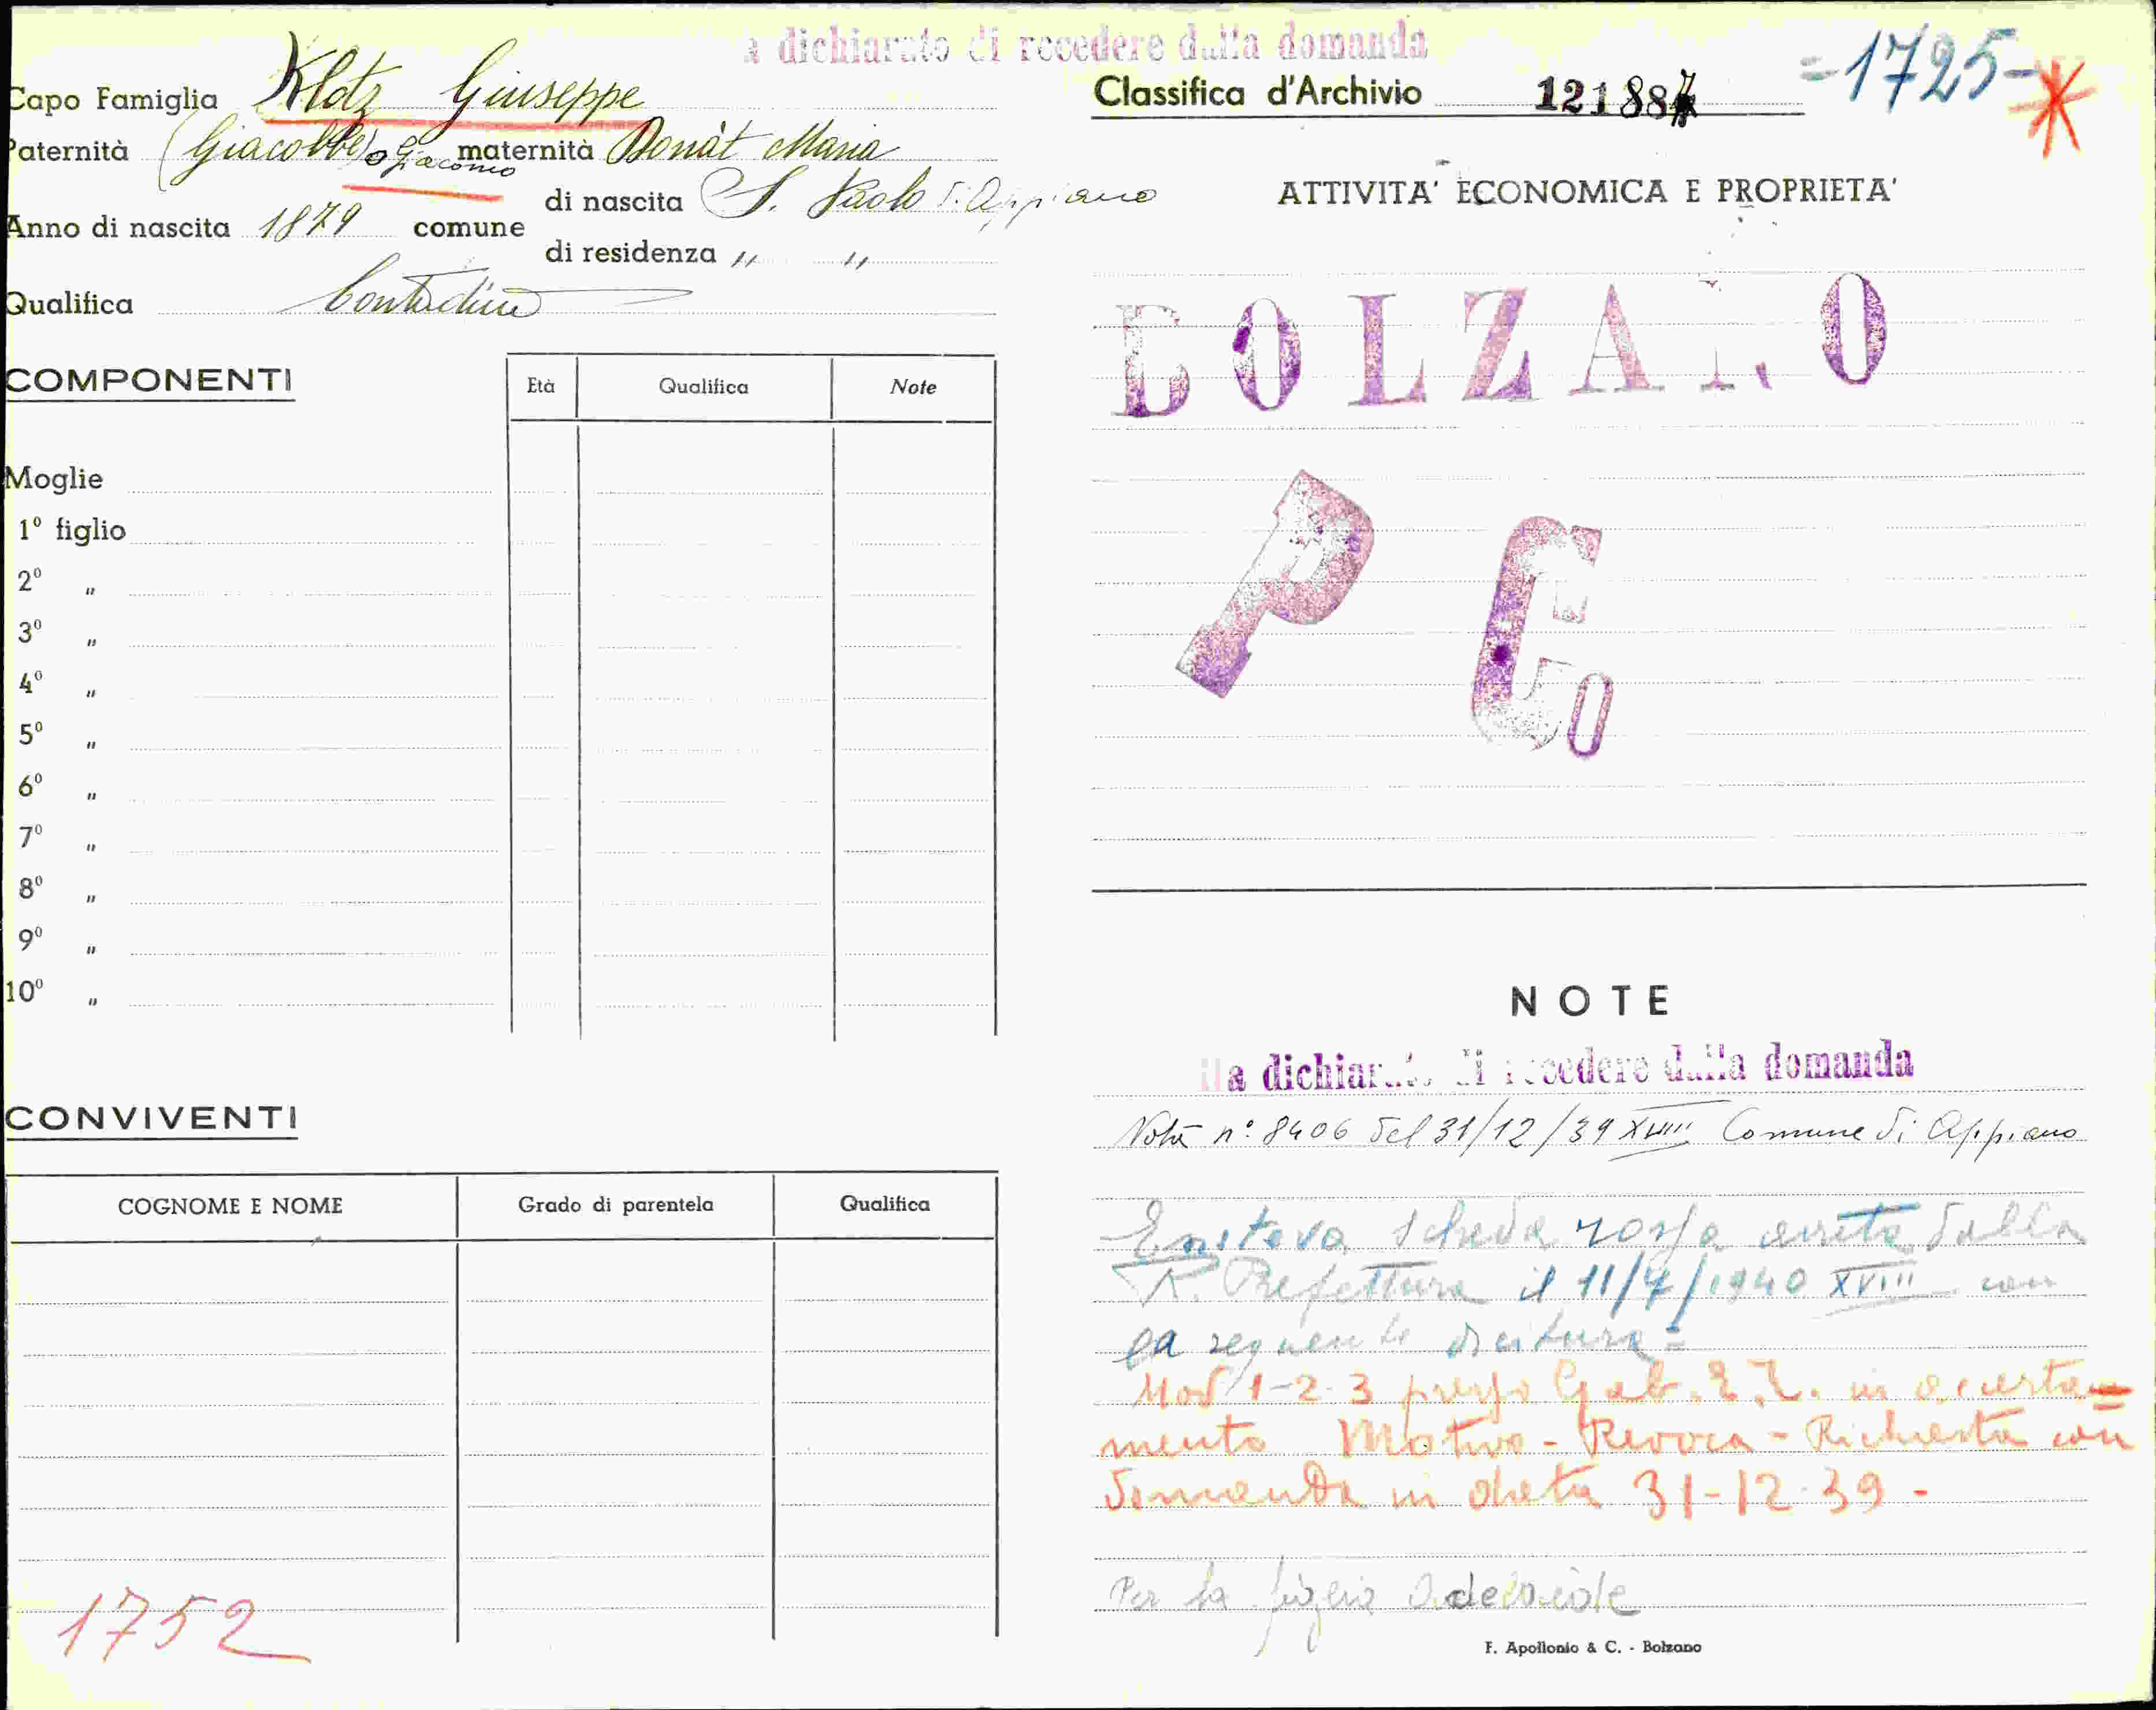 a dichiarato di recedere dalla domanda
Capo Famiglia Klotz Giuseppe
Paternità (Giacobbe) o Giacomo maternità Donàt Maria
Anno di nascita 1879 comune di nascita S. Paolo di Appiano
di residenza " "
Qualifica Contadino
COMPONENTI
Età Qualifica Note
Moglie
1º figlio
2º "
3º "
4º "
5º "
6º "
7º "
8º "
9º "
10º "
CONVIVENTI
COGNOME E NOME Grado di parentela Qualifica
1752
Classifica d'Archivio 121884 =1725-
ATTIVITA' ECONOMICA E PROPRIETA'
BOLZANO
P C
O
NOTE
Ha dichiarato di recedere dalla domanda
Nota nº 8406 del 31/12/39 XVIII Comune di Appiano
Esisteva scheda rossa dalla
R. Prefettura il 11/7/1940 XVIII con
la seguente dicitura =
Mod 1-2-3 presso Gab. in accerta=
mento Motivo - Revoca - Richiesta con
domanda in data 31-12-39 -
Per la figlia Adelaide
F. Apollonio & C. - Bolzano